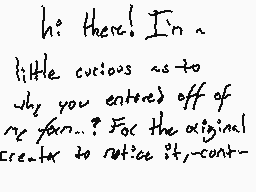 hi there! I'm a
little curious as to
why you entered off of
my form...? For the original
creator to notice it, -cont-